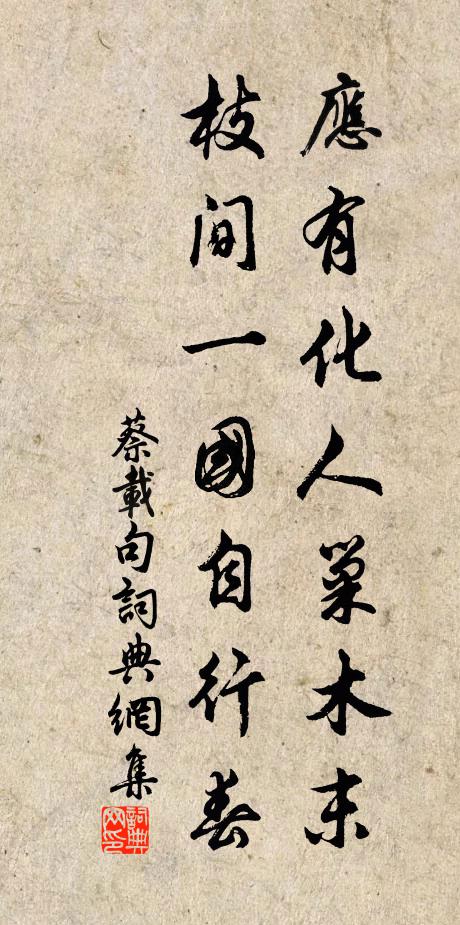 應有化人巢木末
枝間一國自行春
蔡載句詞典網集
詞典网印